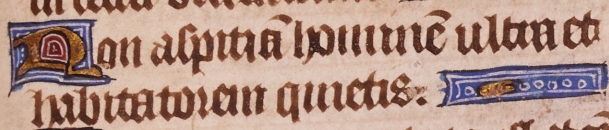 Non aspiciā hominē ultra et
habitatorem quietis.